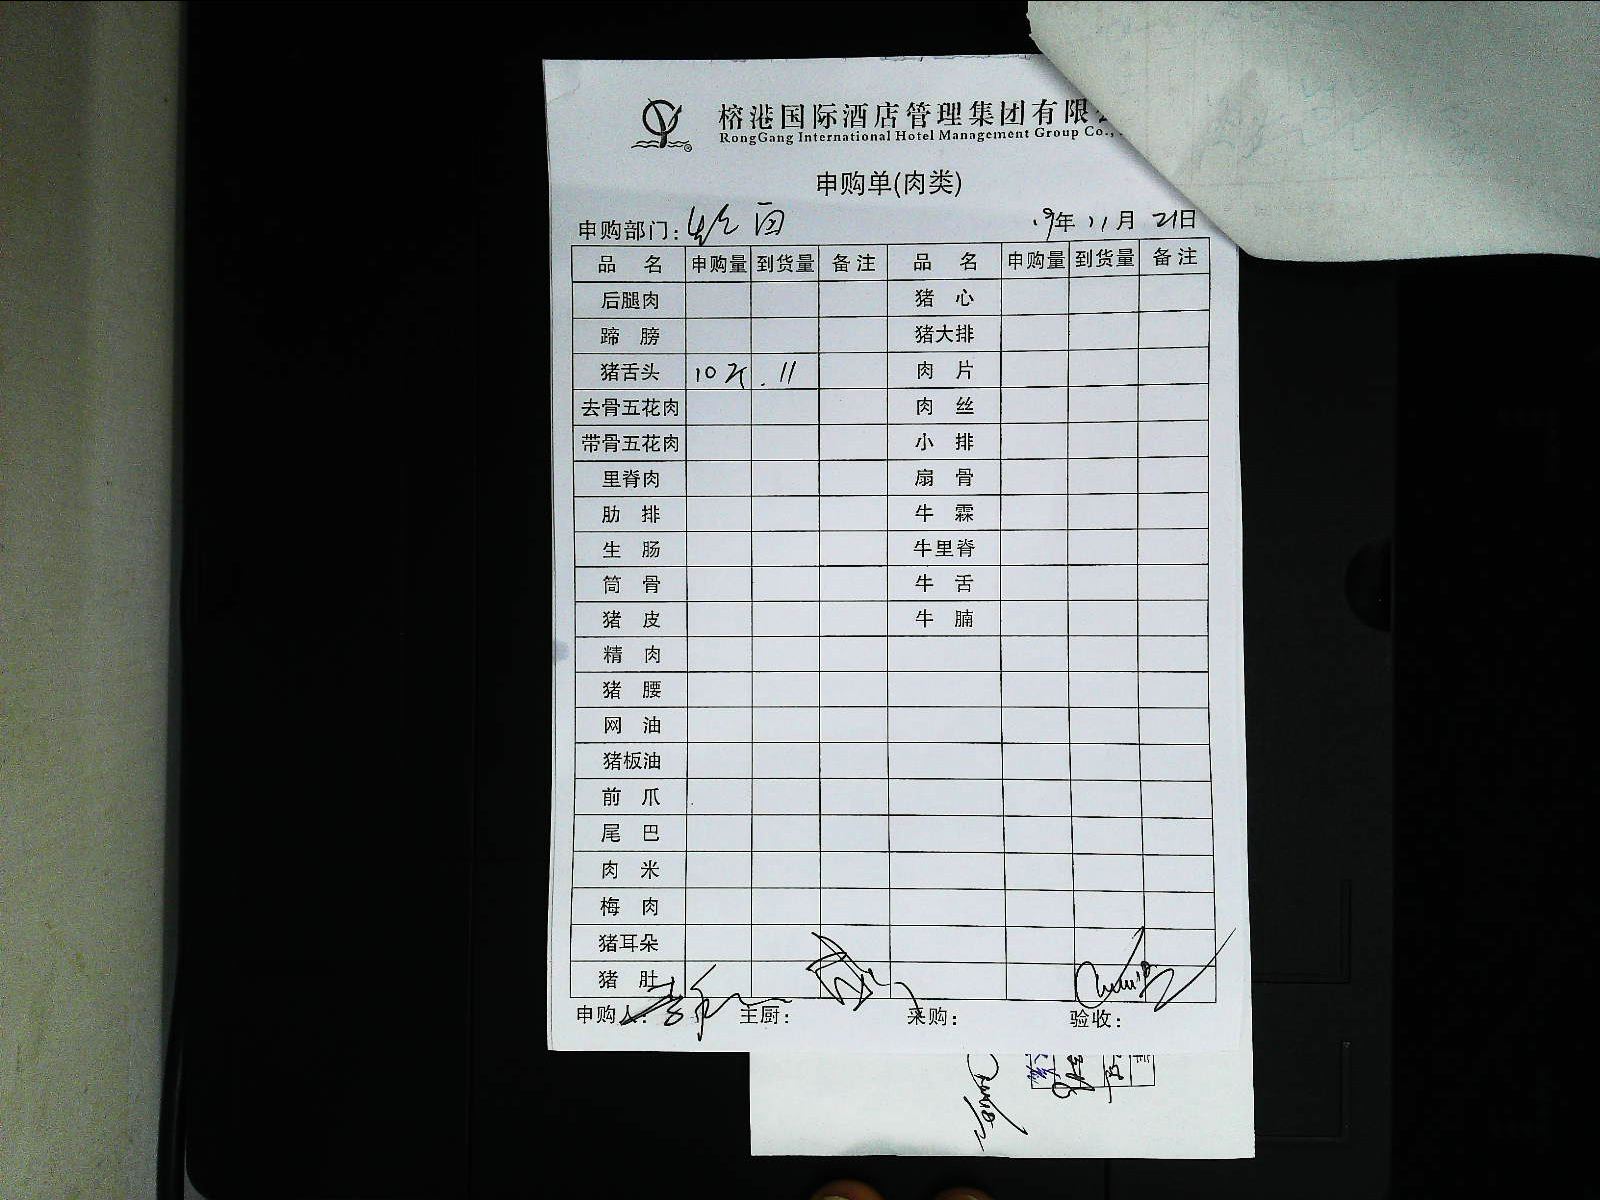 榕港国际酒店管理集团有限
RongGang International Hotel Management Group Co.,
申购单(肉类)
申购部门: 19年 11月 21日
品 名 申购量 到货量 备注 品 名 申购量 到货量 备注
后腿肉 猪 心
蹄 膀 猪大排
猪舌头 10斤 11 肉 片
去骨五花肉 肉 丝
带骨五花肉 小 排
里脊肉 扇 骨
肋 排 牛 霖
生 肠 牛里脊
筒 骨 牛 舌
猪 皮 牛 腩
精 肉
猪 腰
网 油
猪板油
前 爪
尾 巴
肉 米
梅 肉
猪耳朵
猪 肚
申购人: 主厨: 采购: 验收: